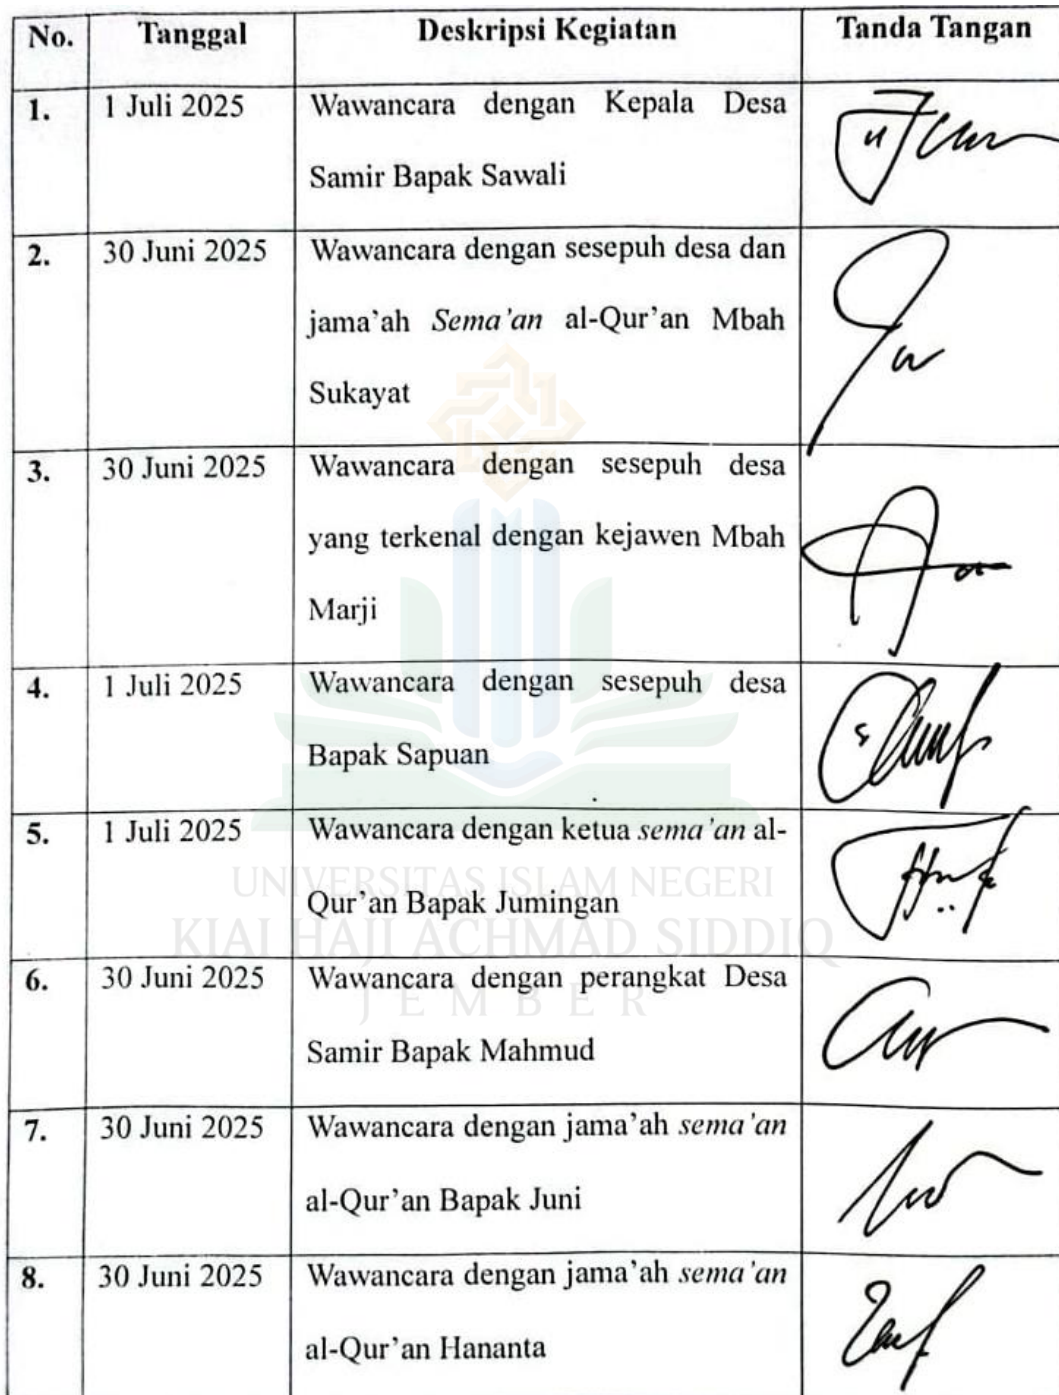 No. Tanggal Deskripsi Kegiatan Tanda Tangan
1. 1 Juli 2025 Wawancara dengan Kepala Desa
Samir Bapak Sawali
2. 30 Juni 2025 Wawancara dengan sesepuh desa dan
jama’ah Sema’an al-Qur’an Mbah
Sukayat
3. 30 Juni 2025 Wawancara dengan sesepuh desa
yang terkenal dengan kejawen Mbah
Marji
4. 1 Juli 2025 Wawancara dengan sesepuh desa
Bapak Sapuan
5. 1 Juli 2025 Wawancara dengan ketua sema’an al-
Qur’an Bapak Jumingan
6. 30 Juni 2025 Wawancara dengan perangkat Desa
Samir Bapak Mahmud
7. 30 Juni 2025 Wawancara dengan jama’ah sema’an
al-Qur’an Bapak Juni
8. 30 Juni 2025 Wawancara dengan jama’ah sema’an
al-Qur’an Hananta
UNIVERSITAS ISLAM NEGERI
KIAI HAJI ACHMAD SIDDIQ
JEMBER